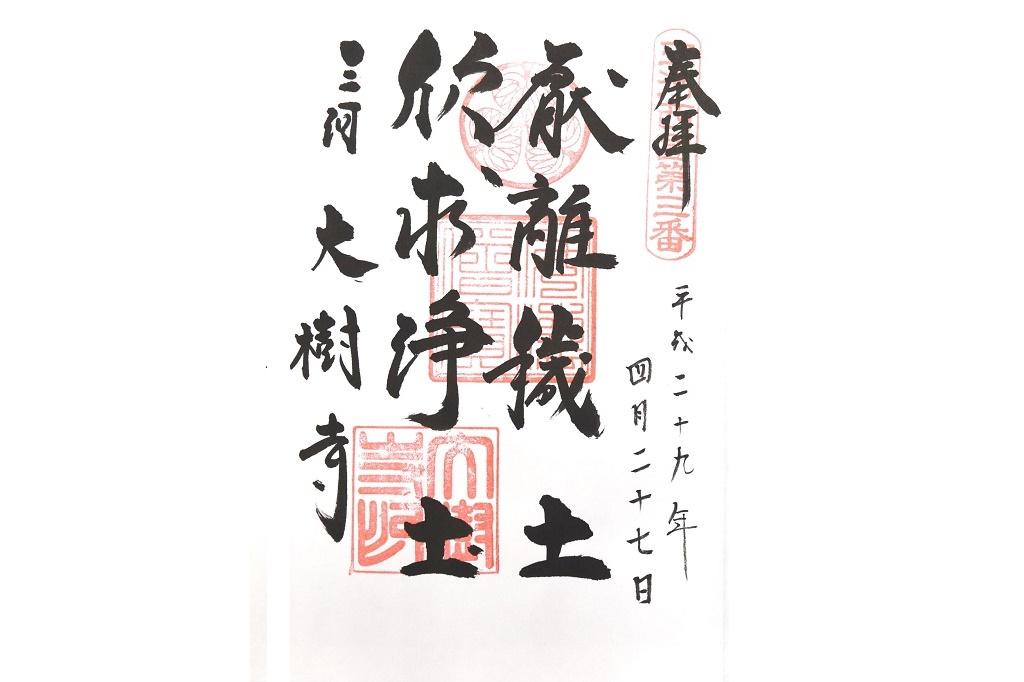 奉拝
第三番
平成二十九年
四月二十七日
厭離穢土
欣求浄土
三河
大樹寺